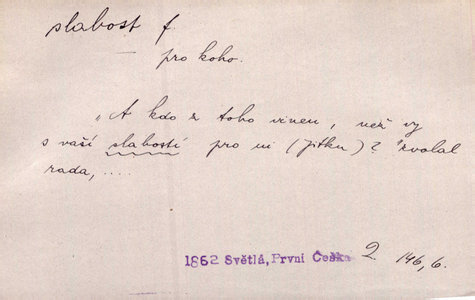 slabost f.
pro koho.
„A kdo z toho vinen, než vy
s vaší slabostí pro ni (Jitku)? zvolal
rada, .....
1862 Světlá, První Češka 2. 146, 6.